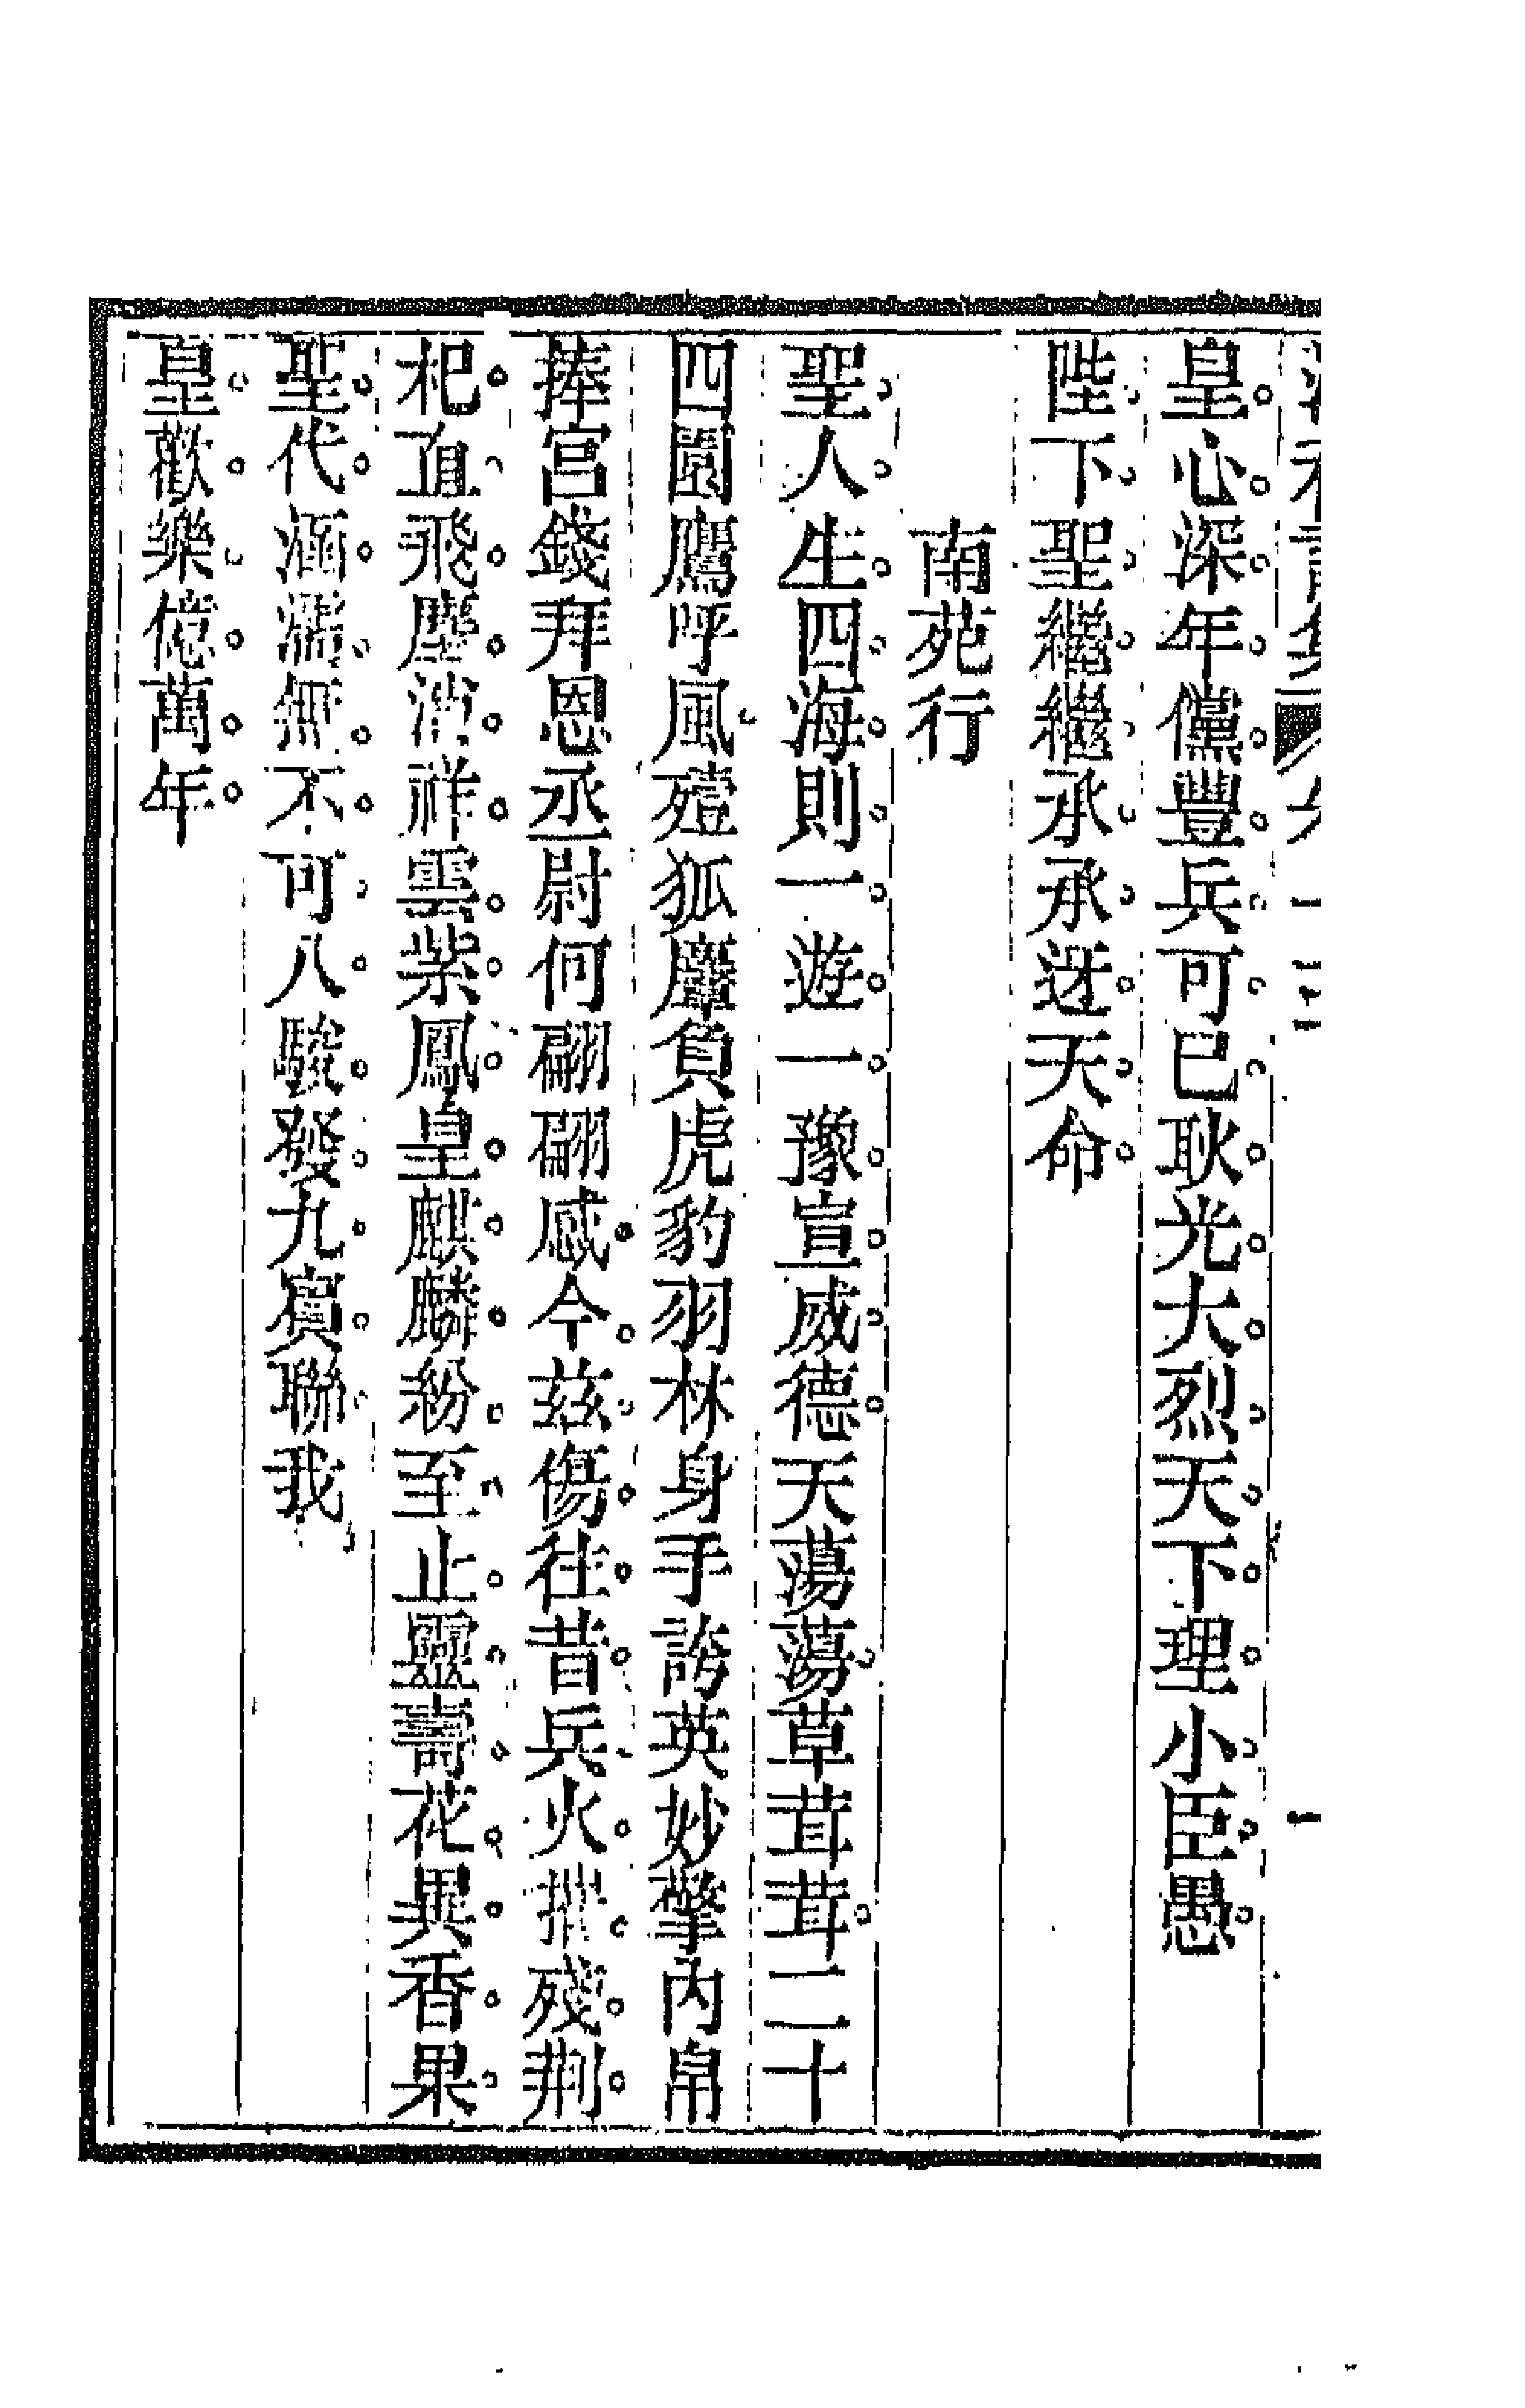 皇心深年儻豐兵可已耿光大烈天下理小臣愚
陛下聖繼繼承承迓天命
南苑行
聖人生四海則一遊一豫宣威德天蕩蕩草茸茸二十
四園鷹呼風殪狐麞負虎豹羽林身手誇英妙擎內帛
捧宮錢拜恩丞尉何翩翩感今茲傷往昔兵火摧殘荆
杞直飛塵消祥雲紫鳳皇麒麟紛至止靈壽花異香果
聖代涵濡無不可八駿發九賓聯我
皇歡樂億萬年